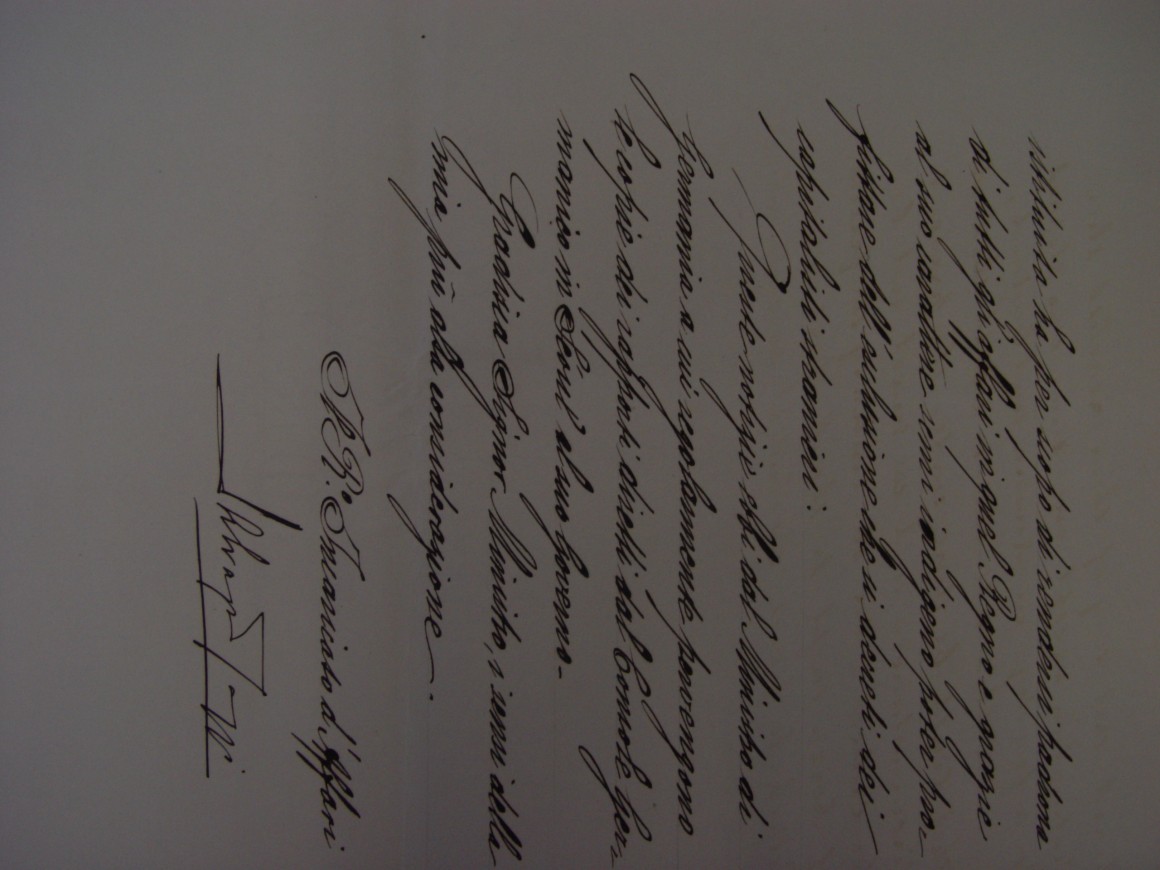 istituita ha per iscopo di rendersi padrona
di tutti gli affari in quel Regno e grazie
al suo carattere semi indigeno poter pro-
fittare dell'esclusione che si decreti dei
capitalisti stranieri.
Queste notizie ebbi dal Ministro di
Germania a cui regolarmente pervengono
le copie dei rapporti diretti dal Console ger-
manico in Seoul al suo Governo.
Gradisca Signor Ministro, i sensi della
mia più alta considerazione.
Il R.o Incaricato d'Affari